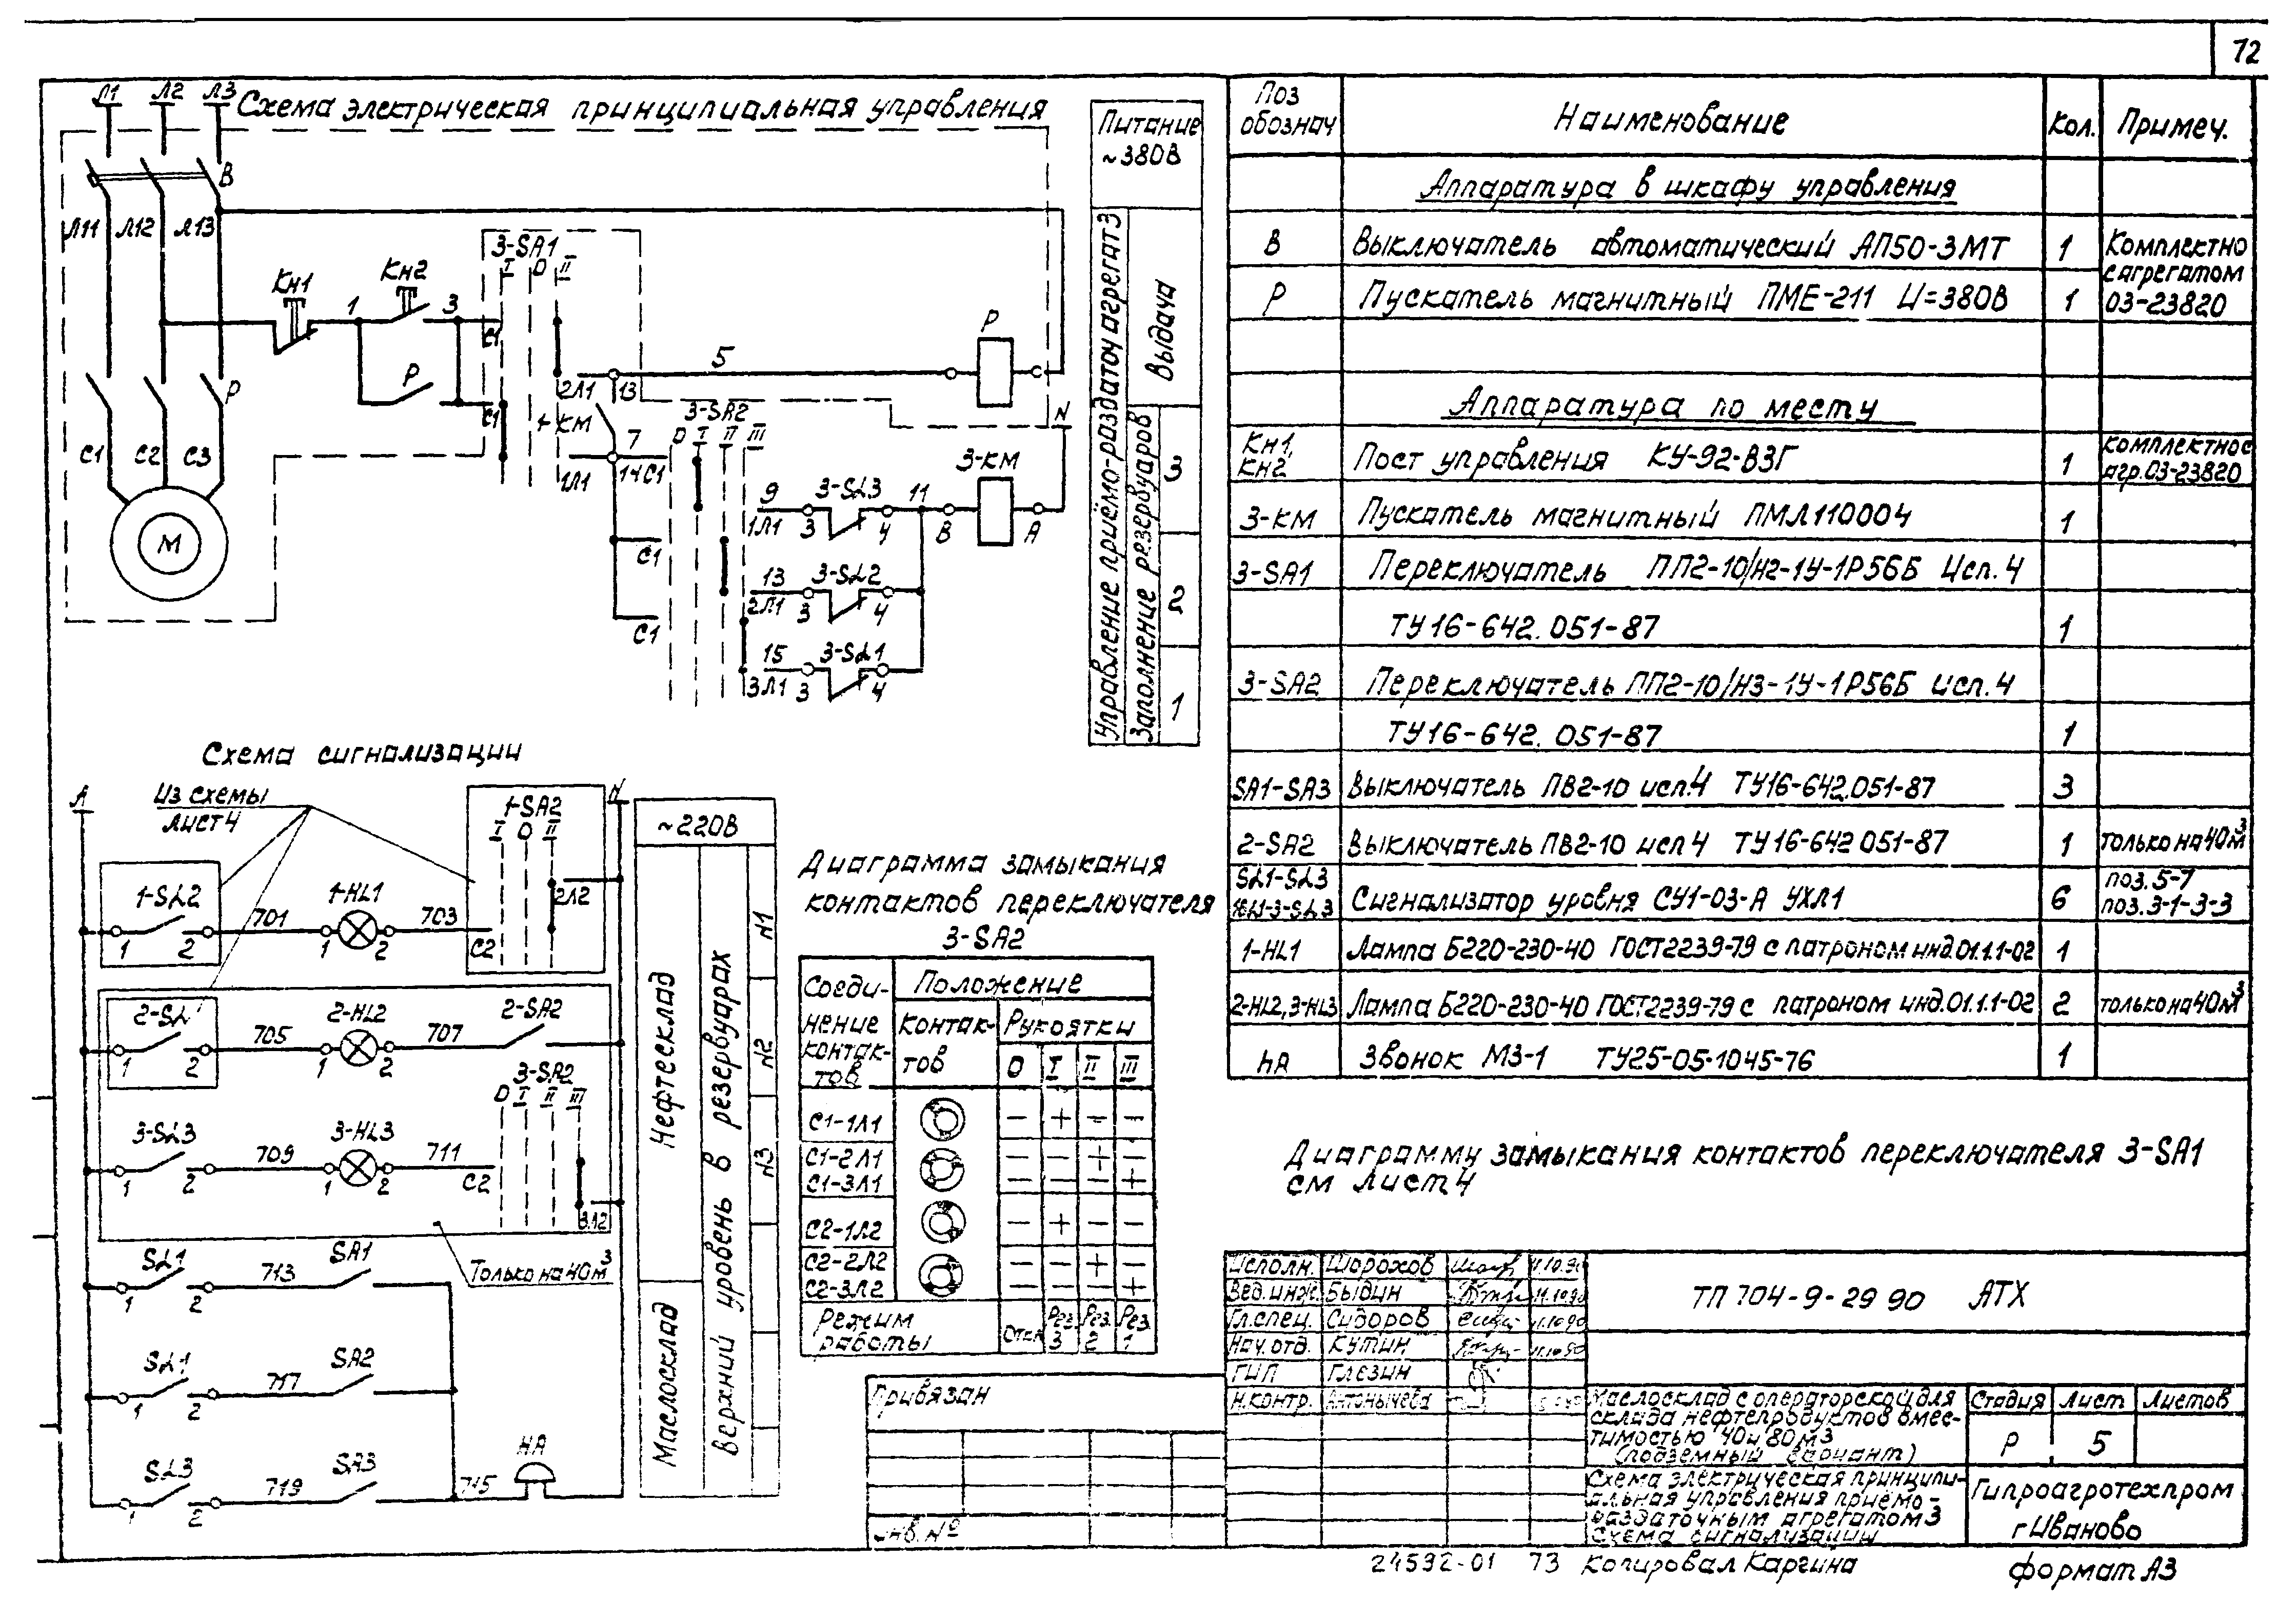 72
Л1 Л2 Л3
Схема электрическая принципиальная управления
В
Л11 Л12 Л13
3-SA1
I 0 II
Кн1 Кн2
1 3
С1
Р
Р
С1
С1 С2 С3
М
2Л1 13
5
Р
1-КМ
3-SA2
0 I II III
7
1Л1 14 С1
N
3-КМ
9 3-SL3 11
1Л1 3 4 В А
С1
13 3-SL2
2Л1 3 4
С1
15 3-SL1
3Л1 3 4
Питание
~380В
Управление приёмо-раздаточ агрегат 3
Выдача
Заполнение резервуаров
3
2
1
Схема сигнализации
А
Из схемы
лист 4
1-SA2
I 0 II
N
1-SL2 701 1-HL1 703
1 2 1 2 С2
2Л2
2-SL 705 2-HL2 707 2-SA2
1 2 1 2
3-SA2
0 I II III
3-SL3 709 3-HL3 711
1 2 1 2 С2
3Л2
Только на 40м3
SL1 713 SA1
1 2
SL1 717 SA2
1 2
SL3 719 SA3
1 2
715
НА
~220В
Нефтесклад
Маслосклад
Верхний уровень в резервуарах
N1
N2
N3
Диаграмма замыкания
контактов переключателя
3-SA2
Соеди-
нение
контак-
тов
Положение
контак-
тов
Рукоятки
0 I II III
С1-1Л1 — + — —
С1-2Л1 — — + —
С1-3Л1 — — — +
С2-1Л2 — + — —
С2-2Л2 — — + —
С2-3Л2 — — — +
Режим
работы
Откл Рез. 3 Рез. 2 Рез. 1
Поз
обознач Наименование Кол. Примеч.
Аппаратура в шкафу управления
В Выключатель автоматический АП50-3МТ 1 Комплектно
с агрегатом
Р Пускатель магнитный ПМЕ-211 U=380В 1 03-23820
Аппаратура по месту
Кн1,
Кн2 Пост управления КУ-92-ВЗГ 1 комплектно с
агр.03-23820
3-КМ Пускатель магнитный ПМЛ110004 1
3-SA1 Переключатель ПП2-10/Н2-1У-1Р56Б Исп. 4
ТУ16-642.051-87 1
3-SA2 Переключатель ПП2-10/Н3-1У-1Р56Б исп. 4
ТУ16-642.051-87 1
SA1-SA3 Выключатель ПВ2-10 исп.4 ТУ16-642.051-87 3
2-SA2 Выключатель ПВ2-10 исп 4 ТУ16-642 051-87 1 только на 40м3
SL1-SL3
Сигнализатор уровня СУ1-03-А УХЛ1 6 поз. 5-7
поз. 3-1-3-3
1-HL1 Лампа Б220-230-40 ГОСТ2239-79 с патроном инд.01.1.1-02 1
2-HL2, 3-HL3 Лампа Б220-230-40 ГОСТ2239-79 с патроном инд.01.1.1-02 2 только на 40м3
hA Звонок МЗ-1 ТУ25-05-1045-76 1
Диаграмму замыкания контактов переключателя 3-SA1
см лист 4
Исполн. Шорохов 11.10.90
Вед.инж. Быдин 11.10.90
Гл.спец. Сидоров 11.10.90
Нач.отд. Кутин 11.10.90
ГИП Глезин
Н.контр. Антонычева
ТП 704-9-29 90 АТХ
Маслосклад с операторской для
склада нефтепродуктов вмес-
тимостью 40 и 80 м3
(подземный вариант)
Стадия Лист Листов
Р 5
Схема электрическая принципи-
альная управления приёмо-
раздаточным агрегатом 3
Схема сигнализации
Гипроагротехпром
г Иваново
Привязан
Инв. №
24592-01 73 Копировал Каргина
формат А3